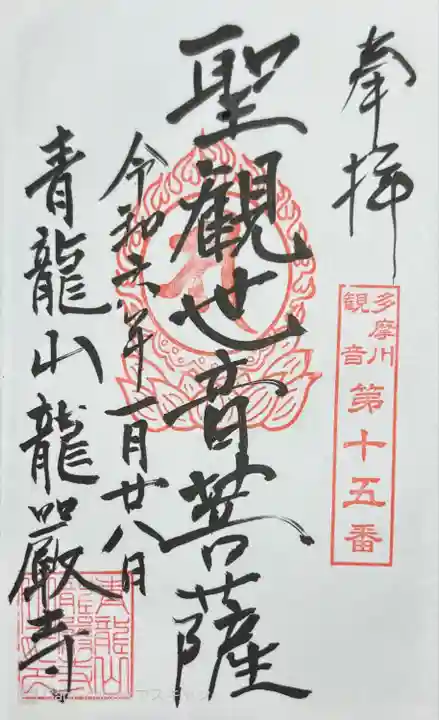 奉拝
多摩川
観音
第十五番
聖観世音菩薩
令和六年一月廿八日
青龍山龍巌寺